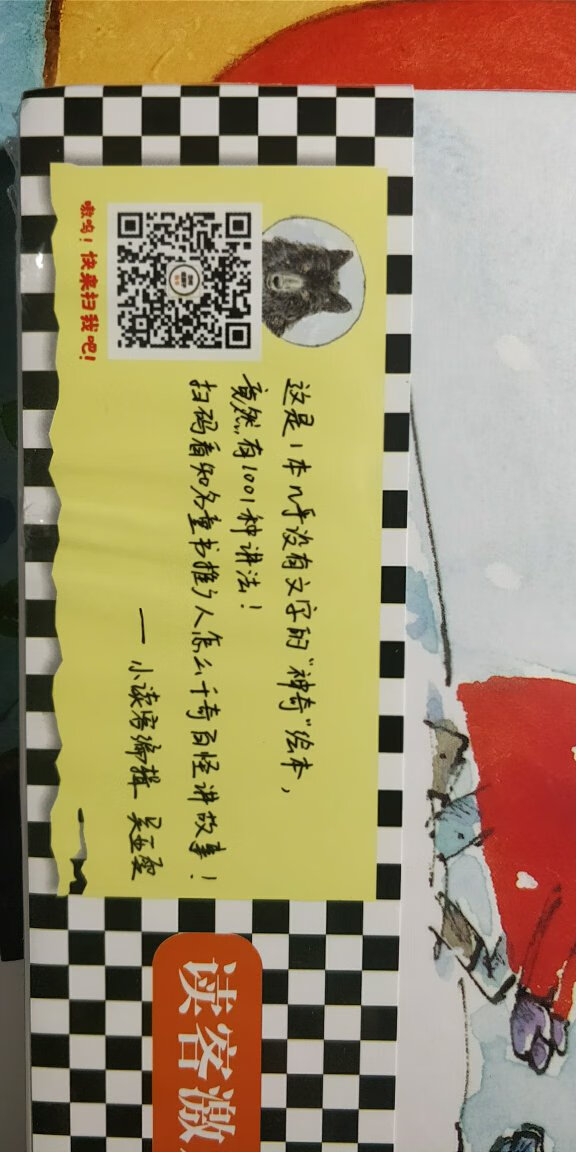 这是1本几乎没有文字的“神奇”绘本，
竟然有1001种讲法！
扫码看知名童书推广人怎么千奇百怪讲故事！
— 小读客编辑 吴亚雯
嗷呜！快来扫我吧！
读客激